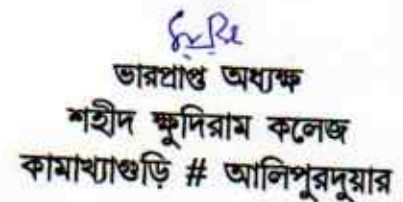 ভারপ্রাপ্ত অধ্যক্ষ
শহীদ ক্ষুদিরাম কলেজ
কামাখ্যাগুড়ি # আলিপুরদুয়ার